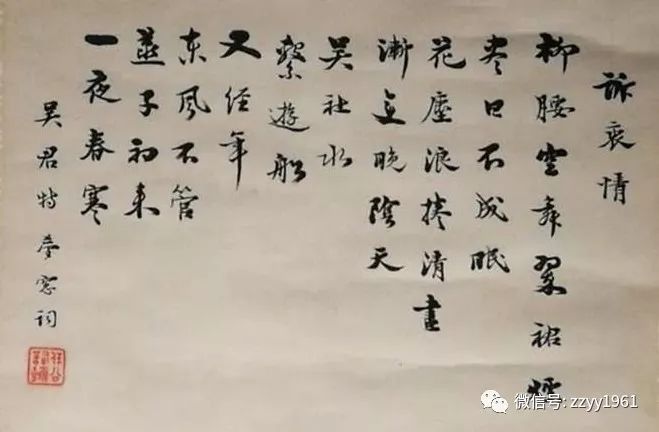 訴衷情
柳腰空舞翠裙煙
盡日不成眠
花塵浪捲清晝
漸變晚陰天
吳社水
繫遊船
又經年
東風不管
燕子初來
一夜春寒
吳君特夢窗詞
微信号: zzyy1961